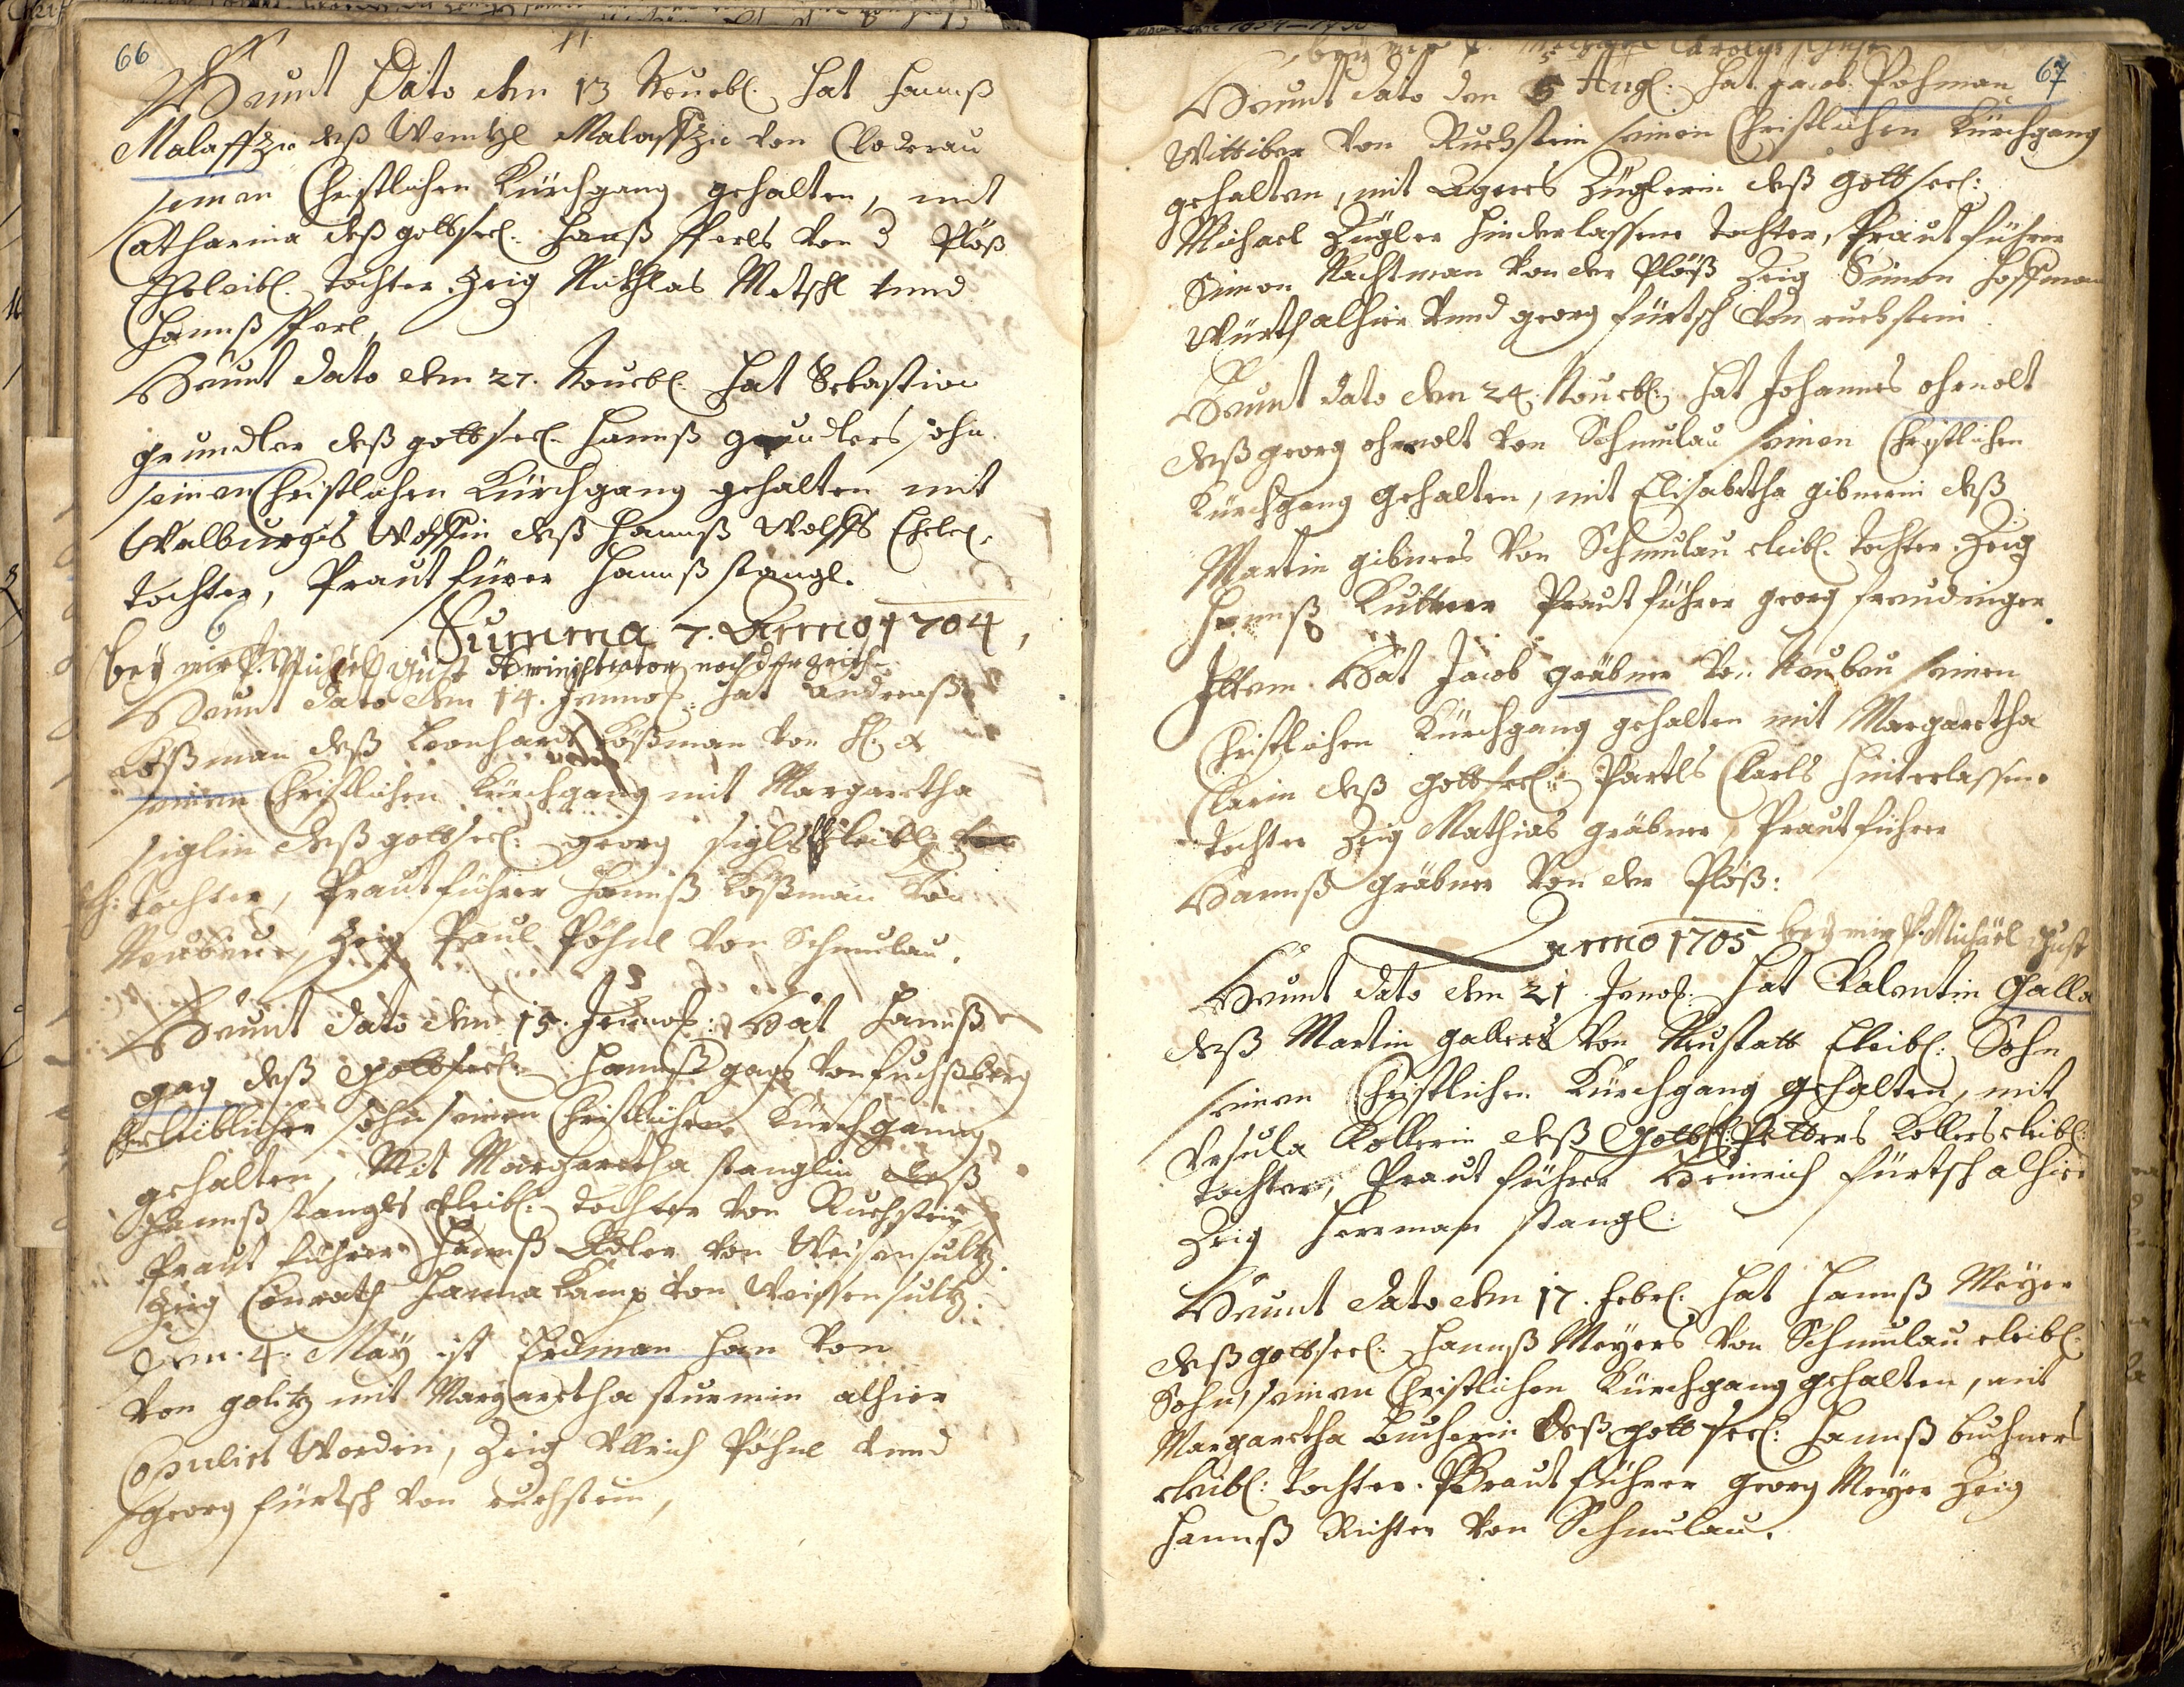 66
Heunt Dato den 13 Nouebl. hat Hannß
Malaffzie deß Wentzl Malaffzie von Cloderau
seinen Christlichen Kürchgang gehalten, mit
Catharina deß gottseel. Hanß Perls von 3 Plöß
Eheleibl. tochter. Zeig Nickhlas Metschl vnnd
Hannß Perl,
Heunt dato den 27. Nouebl. hat Sebastian
grundler deß gottseel. Hannß grundlers sohn
seinen Christlichen Kürchgang gehalten mit
Walburgis Wolffin deß Hannß Wolffs Ehelel.
tochter, Prautfürer Hannß stangl.
Summa 7. Anno 1704,
bey mir P. Michäel Gust Administrator
Heunt dato den 14. Jennol: hat Andreaß
Koßman deß Leonhardt Koßman von
seinen Christlichen Kürchgang mit Margaretha
siglin deß gottseel: georg sigls Eheleibl:
tochter, Prautführer Hannß Koßman von
Neubeu, Zeig Paul Pöhnl von Schmulau.
Heunt dato den 15. Jennol: Hat Hannß
gag deß gottseel: Hannß gags von fuchßberg
Eheleiblicher sohn seinen Christlichen Kürchgang
gehalten, Mit Margaretha stanglin deß
Hannß stangls Eleibl: dochter von Ruchstein
Praut führer Hannß Adler von Weisensultz.
Zeig Conrath Hannakamp von Weissensultz.
Den. 4. May ist Erdman Han von
von golitz mit Margaretha sturmin alhier
Copulirt Worden, Zeig Vllrich Pöhnl vnnd
georg fürtsch von ruchstein,
67
Heunt dato den 5 Augl: hat Jacob Pohman
Wittiber von Ruchstein seinen Christlichen Kürchgang
gehalten, mit Agnes Züglerin deß gottseel:
Michael Zügler hinderlassene tochter, Prautführer
Simon Nachtman von der Plöß Zeig Simon Hoffman
Würth alhier vnnd georg fürtsch von ruchstein
Heunt dato den 24. Nouebl: hat Johannes ohrnolt
deß georg ohrnolt von Schmulau seinen Christlichen
Kürchgang gehalten, mit Elisabetha gibnerin deß
Martin gibners von Schmulau eleibl. tochter. Zeig
Hannß Kuttner Prautführer georg freudinger.
Ittem. Hat Jacob gräbner von Neubeu seinen
Christlichen Kürchgang gehalten mit Margaretha
Clarin deß gottseel: Partls Clarls hinterlassene
tochter Zeig Mathias gräbner, Prautführer
Hannß gräbner von der Plöß:
Anno 1705 bey mir P. Michäel Gust
Heunt dato den 21 Jenol. hat Valentin Galla
deß Martin gallers von Neustatt Eleibl: Sohn
seinen Christlichen Kürchgang gehalten, mit
Vrsula Kollerin deß Gottsl: Petters Kollers eleibl:
tochter, Praut führer Heinrich fürtsch alhier
Zeig Herrman stangl:
Heunt dato den 17. febrl: hat Hannß Meÿer
deß gottseel. Hannß Meyers von Schmulau eleibl:
Sohn, seinen Christlichen Kürchgang gehalten, mit
Margaretha Bucherin deß gottseel: Hannß buchners
eleibl: tochter. Praut führer georg Meyer Zeig
Hannß Richter von Schmulau.